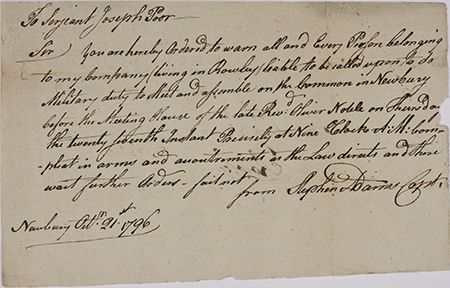 To Serjeant Joseph Poor
Sir You are hereby Ordered to warn all and Every Person belonging
to my Company living in Rowley liable to be called upon to do
Military duty to Meet and assemble on the Common in Newbury
before the Meeting House of the late Revd. Oliver Noble on Thursday
the twenty seventh Instant Precisely at Nine Clock A:M: Com-
-pleat in arms and acoutrements as the Law directs and there
wait further Orders - fail not
from Stephen Capt:
Newbury Octr. 21st 1796